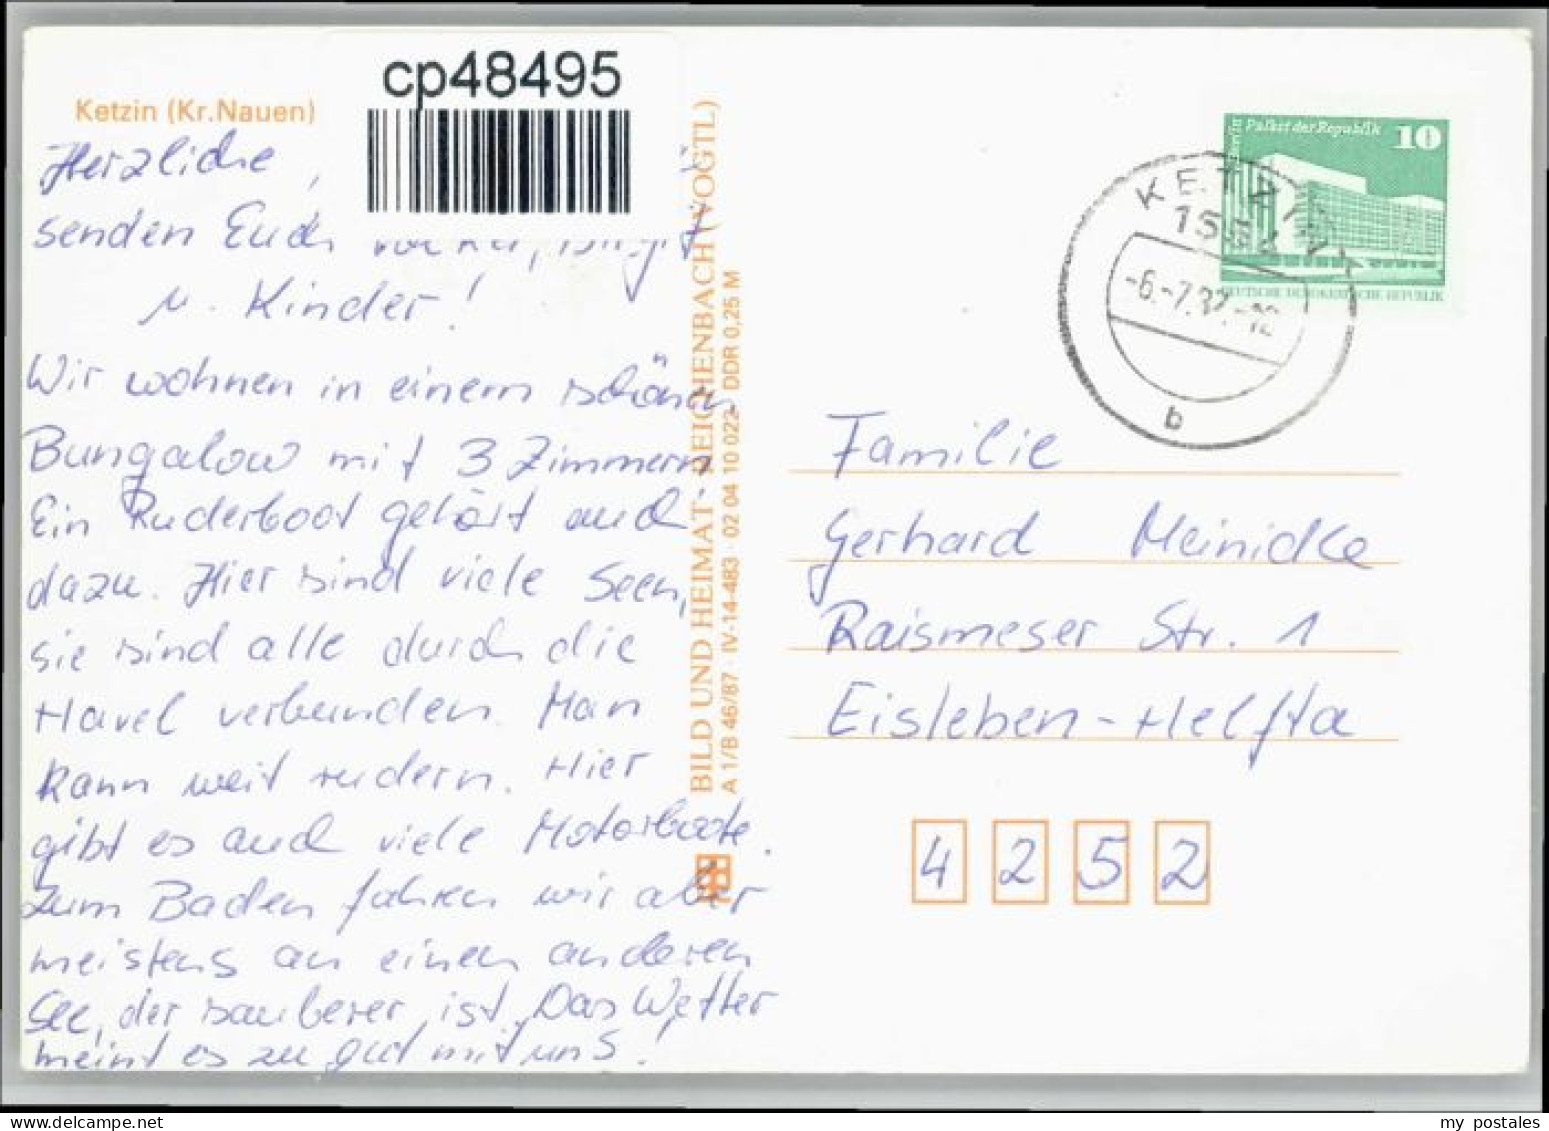 cp48495
Ketzin (Kr. Nauen)
Herzliche
senden Euch
u. Kinder!
Wir wohnen in einem schönen
Bungalow mit 3 Zimmern.
Ein Ruderboot gehört auch
dazu. Hier sind viele Seen,
sie sind alle durch die
Havel verbunden. Man
kann weit rudern. Hier
gibt es auch viele Motorboote.
Zum Baden fahren wir aber
meistens an einen anderen
See, der sauberer ist. Das Wetter
meint es zu gut mit uns!
BILD UND HEIMAT · REICHENBACH (VOGTL)
A 1/B 46/87 · IV-14-483 · 02 04 10 022 · DDR 0,25 M
Berlin
Palast der Republik 10
DEUTSCHE DEMOKRATISCHE REPUBLIK
KETZIN 1
b
Familie
Gerhard Meinicke
Raismeser Str. 1
Eisleben-Helfta
4252
my postales